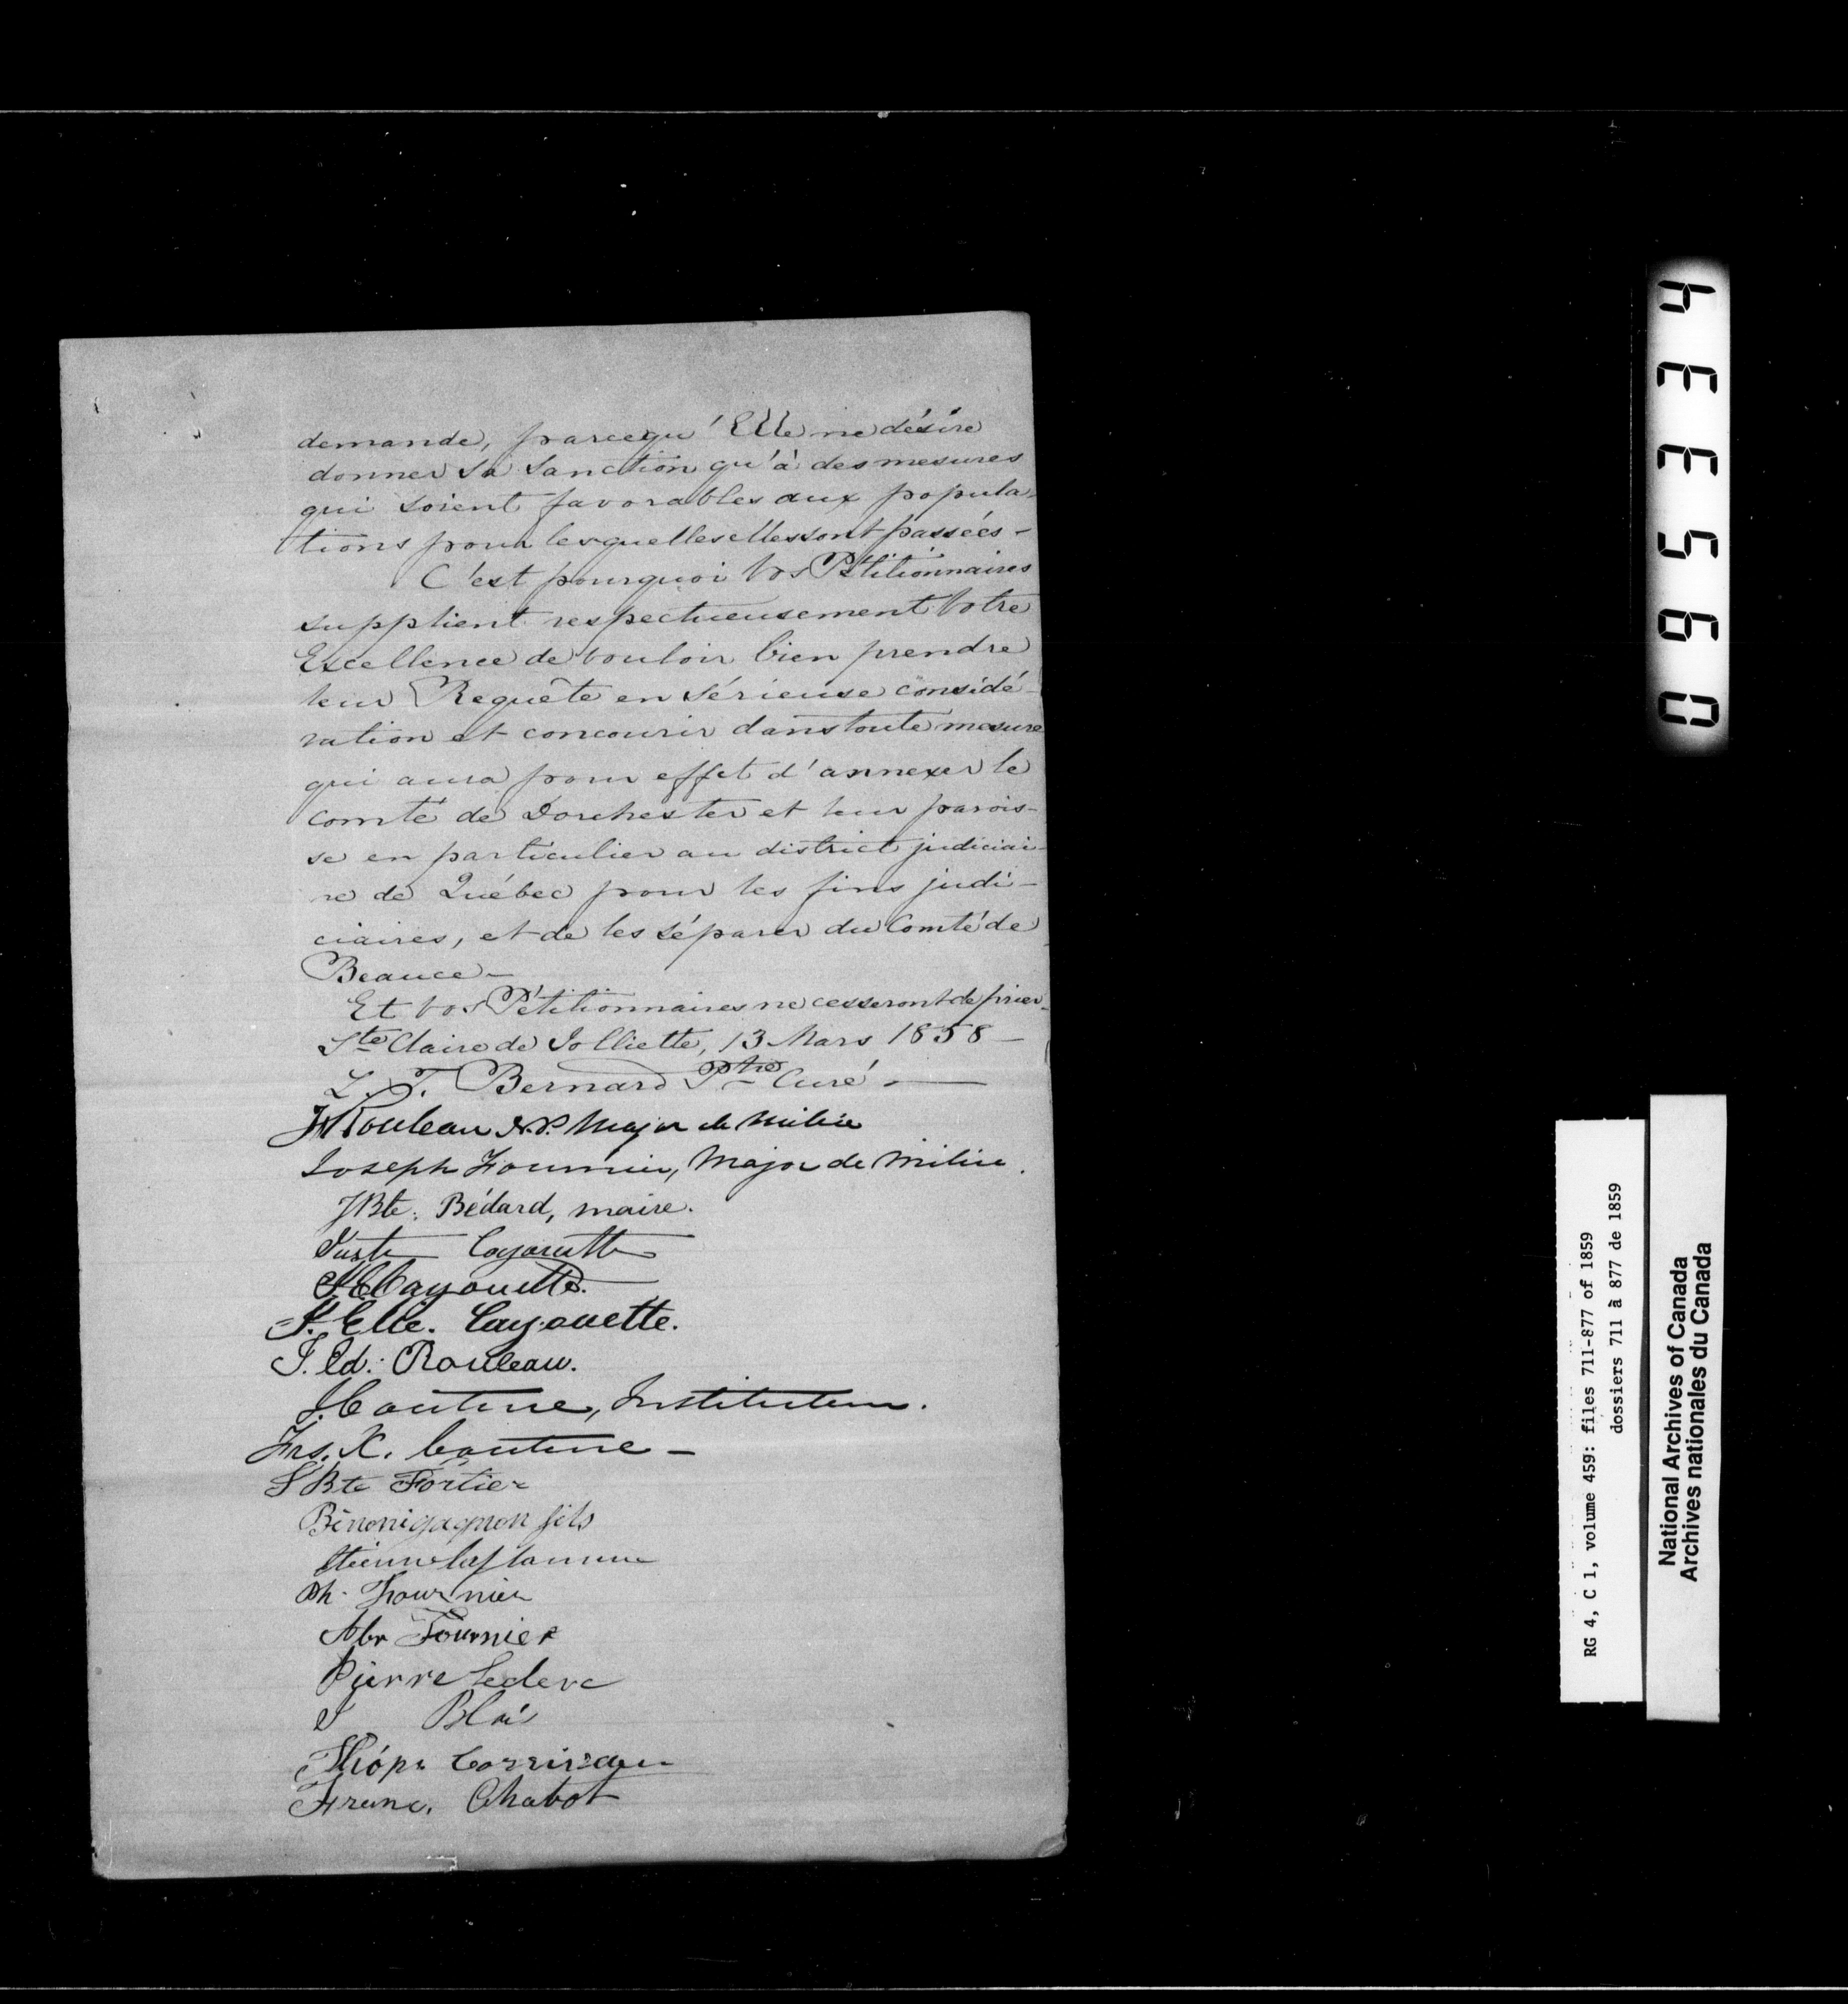 demande, parcequ'Elle ne désire
donner sa sanction qu'à des mesures
qui soient favorables aux popula-
tions pour lesquelles elles sont passées -
C'est pourquoi Vos Pétitionnaires
supplient respectueusement Votre
Excellence de vouloir bien prendre
leur Requête en sérieuse considé-
ration et concourir dans toute mesure
qui aura pour effet d'annexer le
comté de Dorchester et leur parois-
se en particulier au district judiciai-
re de Québec pour les fins judi-
ciaires, et de les séparer du Comté de
Beauce -
Et vos Pétitionnaires ne cesseront de prier -
Ste Claire de Jolliette, 13 Mars 1858 -
L. T. Bernard Ptre Curé. -
Rouleau N.P. Major de Milice
Joseph Fournier, Major de Milice.
JBte. Bédard, maire.
Juste Cayouette
Cayouette.
Elie. Cayouette.
J. Ed: Rouleau.
J. Couture, Instituteur.
Frs. X. Couture -
J Bte Fortier
Bénoni gagnon fils
Etienne laflamme
Ph. Fournier
Abr Fournier
Pierre Leclerc
J Blai
Thóp. Corriveau
Franc. Chabot
095334
RG 4, C 1, volume 459: files 711-877 of 1859
dossiers 711 à 877 de 1859
National Archives of Canada
Archives nationales du Canada